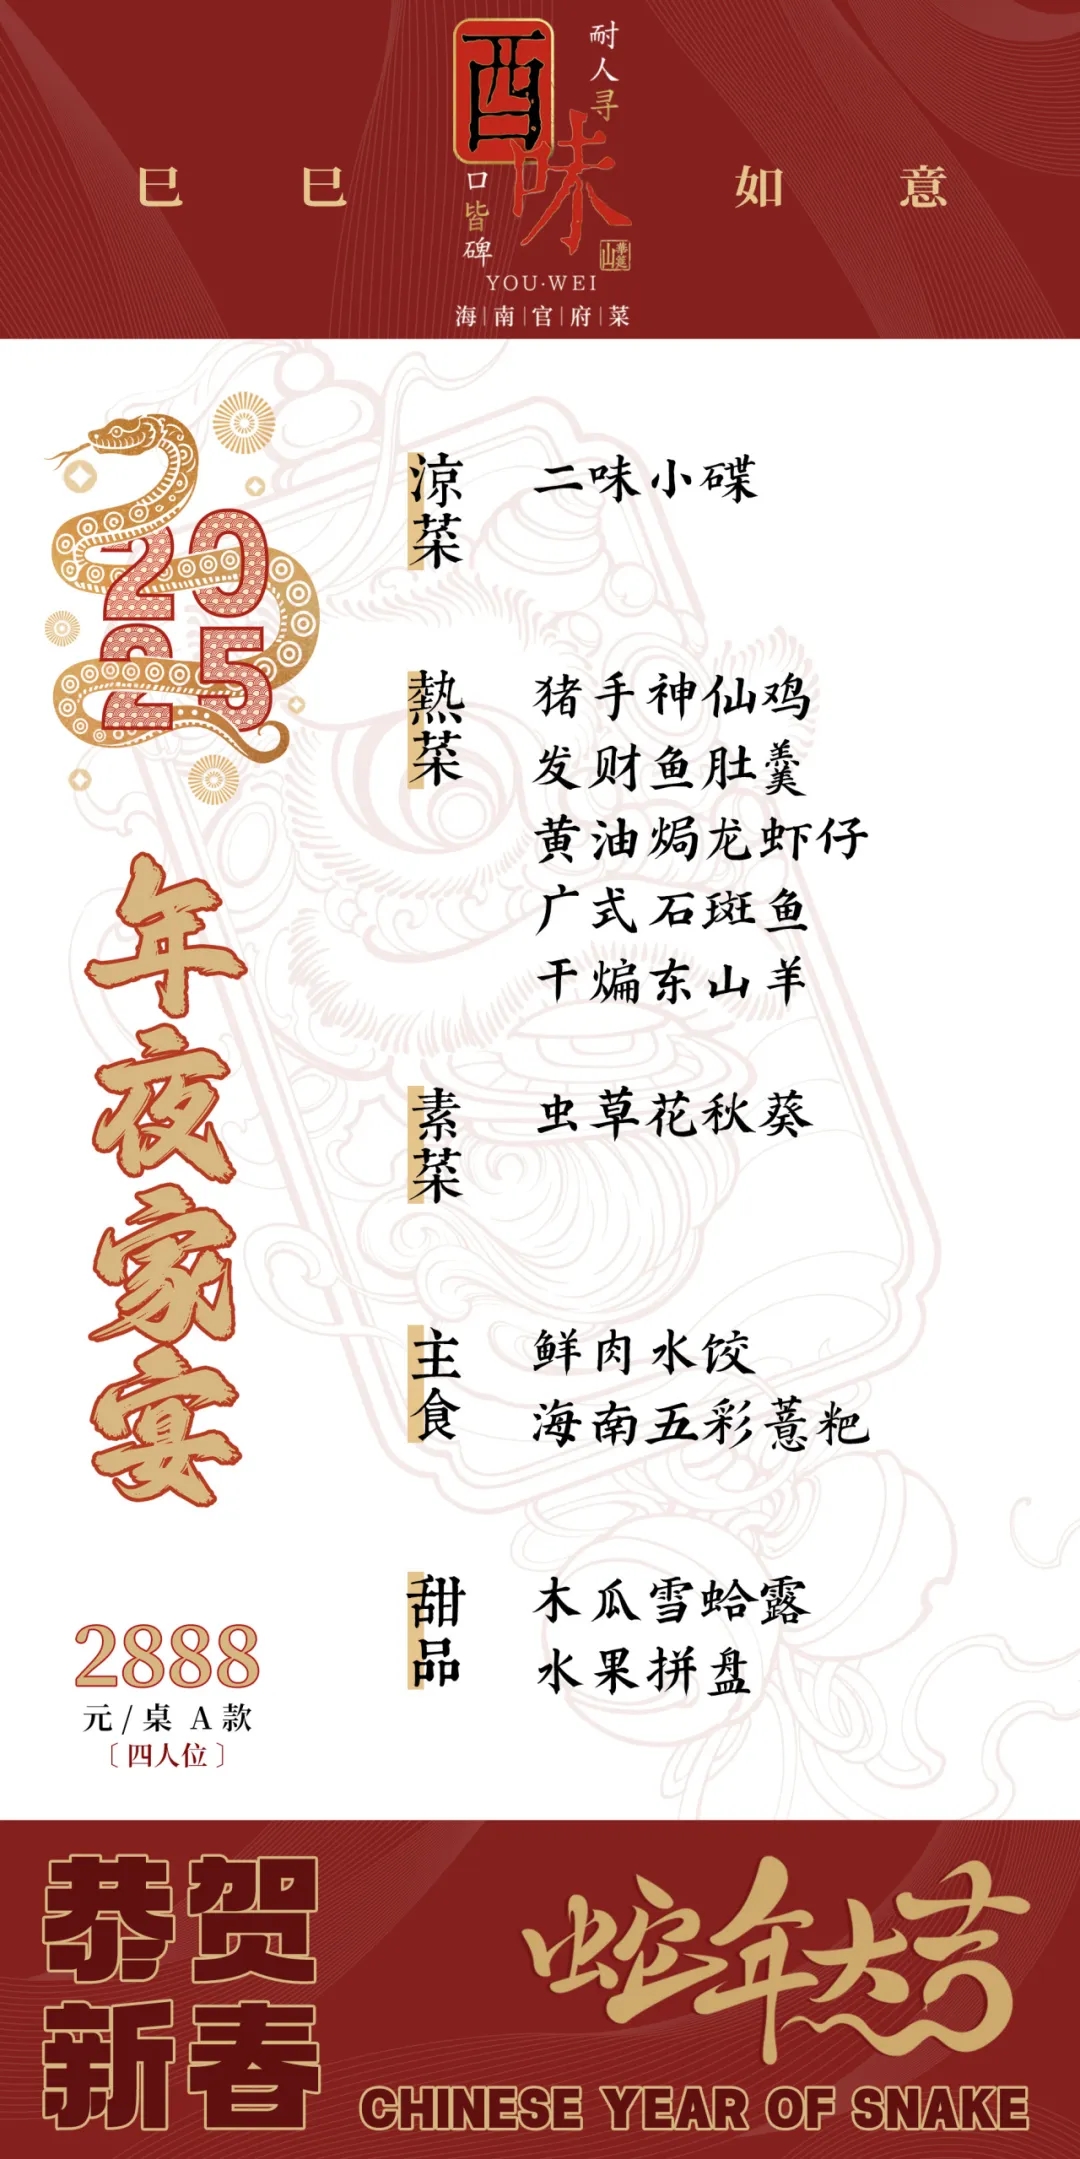 巳 巳 如 意
酉味
耐人寻
口皆碑
華莚山
YOU·WEI
海|南|官|府|菜
2025
年夜家宴
2888
元/桌 A款
〔四人位〕
涼菜
二味小碟
熱菜
猪手神仙鸡
发财鱼肚羹
黄油焗龙虾仔
广式石斑鱼
干煸东山羊
素菜
虫草花秋葵
主食
鲜肉水饺
海南五彩薏粑
甜品
木瓜雪蛤露
水果拼盘
恭贺
新春
蛇年大吉
CHINESE YEAR OF SNAKE